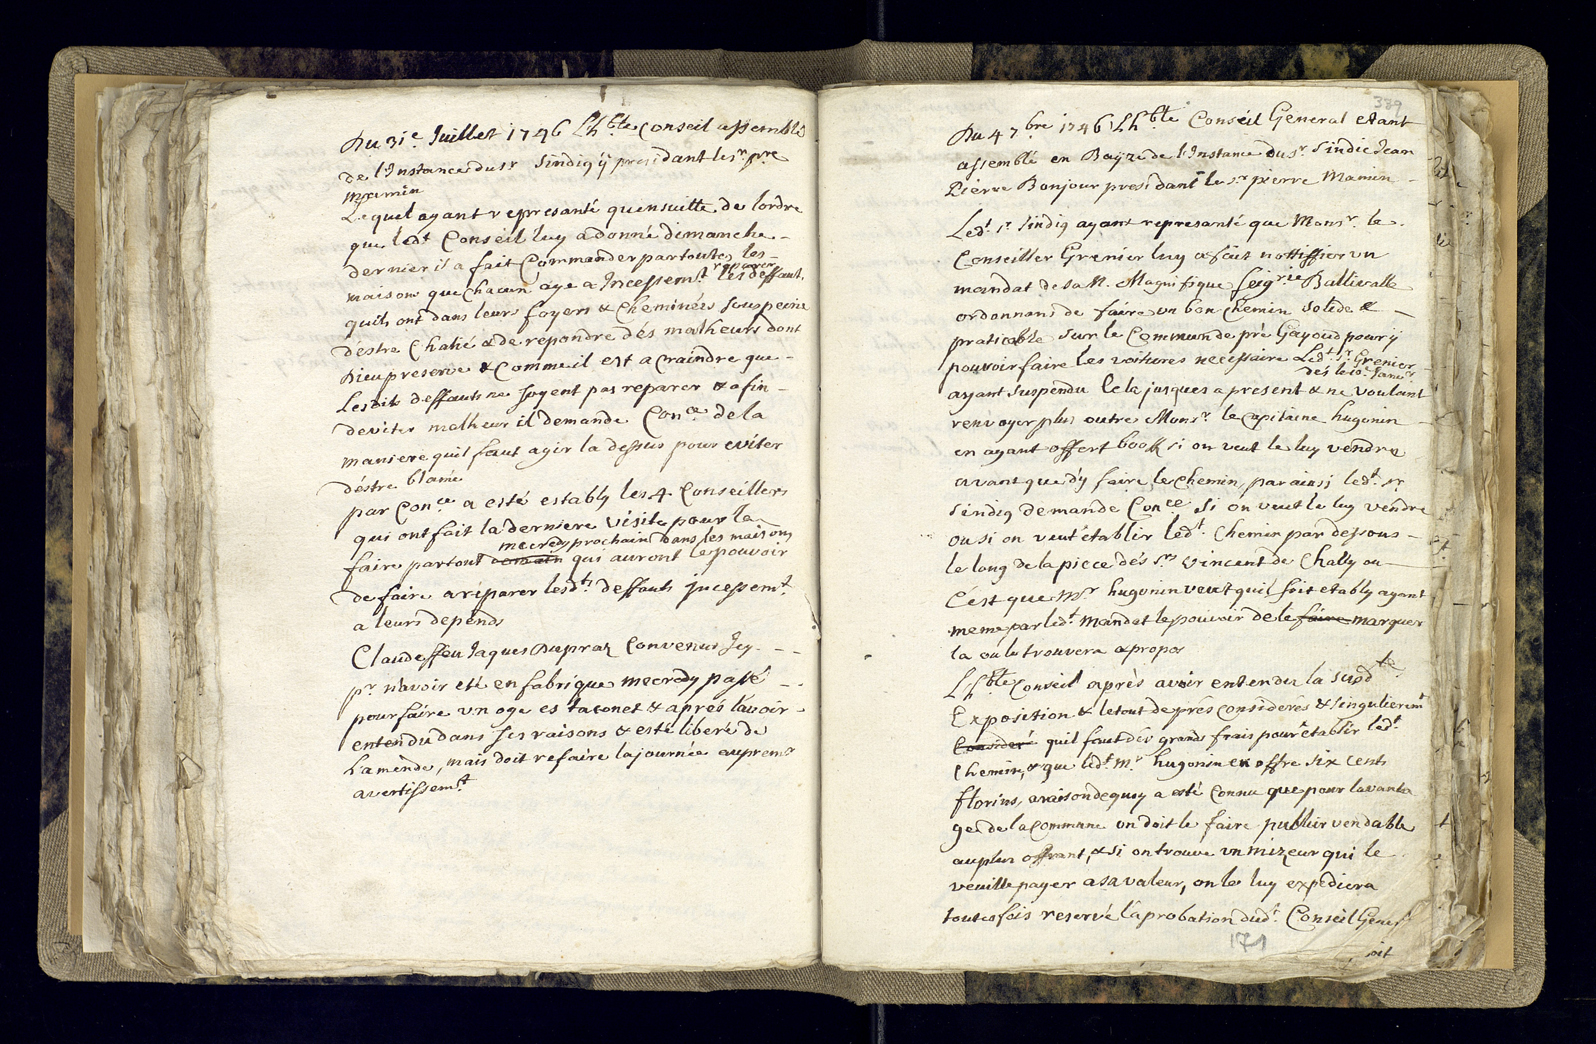 Du 31e. Juillet 1746 Lhble Conseil assemblé
de l'Instance du sr Sindiq ÿ presidant le sr. pre
Mamin
Lequel ayant representé quensuitte de lordre
que ledt Conseil luy a donné dimanche -
dernier il a fait Commander par toutes les -
maisons que Chacun aye a Incessemt. reparer les deffauts
quils ont dans leurs foyers & Cheminées sous peine
déstre Chatié & de repondre dés malheurs dont
Dieu preserve & Comme il est a craindre que -
Lesdits deffauts ne soyent pas reparer & afin -
deviter malheur il demande Conce de la
maniere quil faut agir la dessus pour eviter
déstre blamé
par Conce a esté establÿ les 4. Conseillers
qui ont fait la derniere visite pour la
mecredy prochain dans les maisons
faire partout demain qui auront le pouvoir
de faire a reparer lesdts. deffauts incessemt.
a leurs depends
Claude ffeu Jaques Dupraz Convenus Icy - - -
pr. n'avoir eté en fabrique mecredy passé -
pour faire un oge es taconet & aprés l'avoir -
entendu dans ses raisons & esté liberé de
Lamende, mais doit refaire la journée au premr
avertissemt
389
Du 4 7bre 1746 Lhble Conseil General etant
assemblé en Bayze de l'Instance du sr. Sindic Jean
Pierre Bonjour presidant le sr pierre Mamin -
Ledt. sr Sindiq ayant representé que Monsr. le
Conseiller Grenier luy a fait nottiffier un
mandat de sa N. Magnifique Seigrie Ballivalle
ordonnant de faire un bon Chemin Solide & -
praticable sur le Commun de pré Gayoud pour ÿ
pouvoir faire les voitures necessaire Ledt. sr. Grenier
dés le 10e. Janvr.
ayant suspendu Cela jusques a present & ne voulant
renvoyer plus outre Monsr. le Capitaine hugonin
en ayant offert 600 ff si on veut le luy vendre
avant que d'y faire le Chemin, par ainsi ledt. sr
Sindiq demande Conce Si on veut le luy vendre
ou si on veut établir ledt Chemin par dessous -
le long de la piece dés srs Vincent de Chally ou -
C'est que Mr hugonin veut quil soit etably ayant
meme par ledt. mandat le pouvoir de le faire marquer
la ou le trouvera apropos
Lhble Conseil aprés avoir entendu la suspdte
Exposition & le tout de prés considerés & singulieremt
Consideré quil faut dés grands frais pour établir ledt
Chemin, & que ledt. Mr hugonin en offre six cents
florins, a raison de quoy a esté Connu que pour lavanta
ge de la Commune on doit le faire publier vendable
au plus offrant, & si on trouve un mizeur qui le
veuille payer a sa valeur, on le luy expediera
toutesfois reservé l'aprobation dudt. Conseil Genel
171
soit